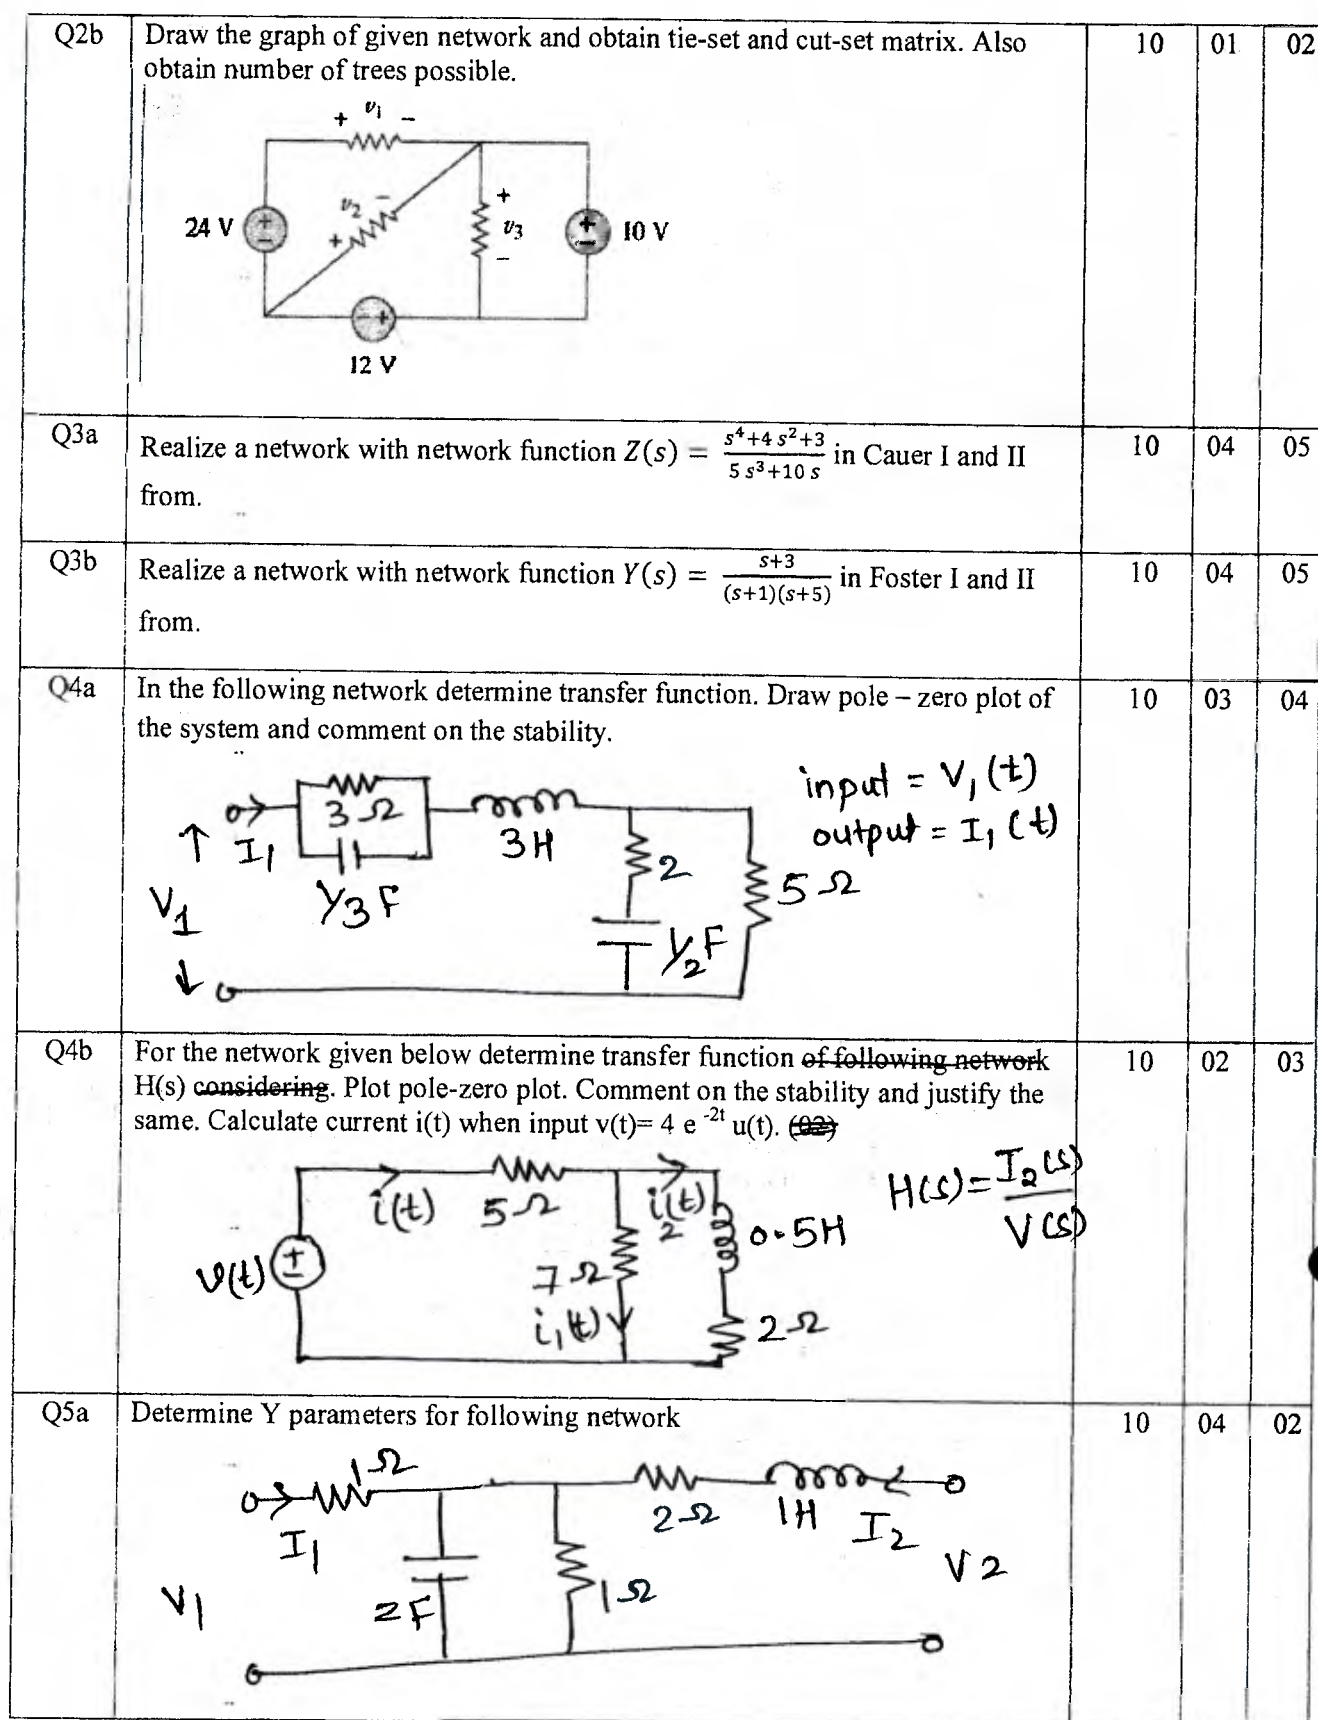 Q2b Draw the graph of given network and obtain tie-set and cut-set matrix. Also 10 01 02
obtain number of trees possible.
+ v1 -
24 V + - + v2 - + v3 - + - 10 V
- +
12 V
Q3a Realize a network with network function Z(s) = (s^4+4 s^2+3)/(5 s^3+10 s) in Cauer I and II 10 04 05
from.
Q3b Realize a network with network function Y(s) = (s+3)/((s+1)(s+5)) in Foster I and II 10 04 05
from.
Q4a In the following network determine transfer function. Draw pole – zero plot of 10 03 04
the system and comment on the stability.
input = V1(t)
output = I1(t)
3Ω
I1 3H 2
V1 1/3 F 5Ω
1/2 F
Q4b For the network given below determine transfer function of following network 10 02 03
H(s) considering. Plot pole-zero plot. Comment on the stability and justify the
same. Calculate current i(t) when input v(t)= 4 e^-2t u(t). (02)
H(s)=I2(s)/V(s)
i(t) 5Ω i2(t) 0.5H
v(t) + - 7Ω
i1(t) 2Ω
Q5a Determine Y parameters for following network 10 04 02
1Ω
I1 2Ω 1H I2
V1 2F 1Ω V2